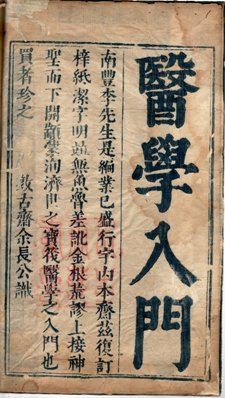 醫學入門
南豐李先生是編業已盛行宇內本齋茲復訂
梓紙潔字明並無魚魯差訛金根荒謬上接神
聖而下開顓蒙洵濟世之寶筏醫學之入門也
買者珍之 古齋余長公識